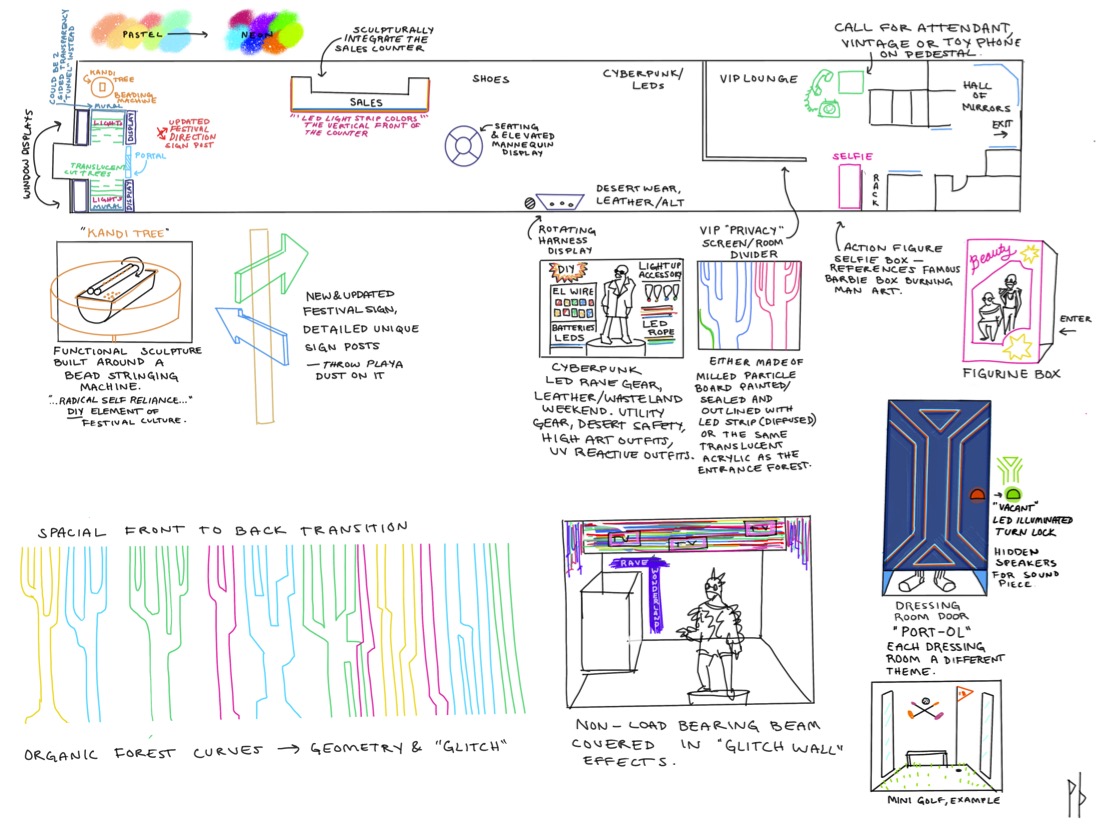 PASTEL
NEON
COULD BE 2
SIDED TRANSPARENCY
"TUNNEL" INSTEAD
KANDI
TREE
BEADING
MACHINE
MURAL
LIGHTS
DISPLAY
UPDATED
FESTIVAL
DIRECTION
SIGN POST
PORTAL
TRANSLUCENT
CUT TREES
LIGHTS
MURAL
DISPLAY
WINDOW DISPLAYS
SCULPTURALLY
INTEGRATE THE
SALES COUNTER
SALES
"LED LIGHT STRIP COLORS"
THE VERTICAL FRONT OF
THE COUNTER
SHOES
SEATING
& ELEVATED
MANNEQUIN
DISPLAY
CYBERPUNK/
LEDS
DESERT WEAR,
LEATHER/ALT
VIP LOUNGE
CALL FOR ATTENDANT,
VINTAGE OR TOY PHONE
ON PEDESTAL.
HALL
OF
MIRRORS
EXIT
SELFIE
RACK
"KANDI TREE"
FUNCTIONAL SCULPTURE
BUILT AROUND A
BEAD STRINGING
MACHINE.
"...RADICAL SELF RELIANCE..."
DIY ELEMENT OF
FESTIVAL CULTURE.
NEW & UPDATED
FESTIVAL SIGN,
DETAILED UNIQUE
SIGN POSTS
— THROW PLAYA
DUST ON IT
ROTATING
HARNESS
DISPLAY
DIY
EL WIRE
BATTERIES
LEDS
LIGHT UP
ACCESSORY
LED
ROPE
CYBERPUNK
LED RAVE GEAR,
LEATHER/WASTELAND
WEEKEND. UTILITY
GEAR, DESERT SAFETY,
HIGH ART OUTFITS,
UV REACTIVE OUTFITS.
VIP "PRIVACY"
SCREEN/ROOM
DIVIDER
EITHER MADE OF
MILLED PARTICLE
BOARD PAINTED/
SEALED AND
OUTLINED WITH
LED STRIP (DIFFUSED)
OR THE SAME
TRANSLUCENT
ACRYLIC AS THE
ENTRANCE FOREST.
ACTION FIGURE
SELFIE BOX —
REFERENCES FAMOUS
BARBIE BOX BURNING
MAN ART.
Beauty
ENTER
FIGURINE BOX
"VACANT"
LED ILLUMINATED
TURN LOCK
HIDDEN
SPEAKERS
FOR SOUND
PIECE
DRESSING
ROOM DOOR
"PORT-OL"
EACH DRESSING
ROOM A DIFFERENT
THEME.
MINI GOLF, EXAMPLE
SPACIAL FRONT TO BACK TRANSITION
ORGANIC FOREST CURVES → GEOMETRY & "GLITCH"
TV
TV
TV
RAVE
WONDERLAND
NON-LOAD BEARING BEAM
COVERED IN "GLITCH WALL"
EFFECTS.